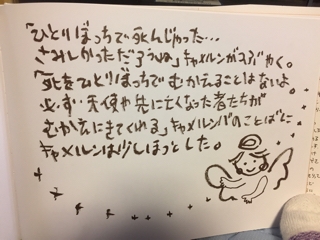 「ひとりぼっちで死んじゃった…
さみしかっただろうね」キャメルンがつぶやく。
「死をひとりぼっちでむかえることはないよ。
必ず、天使や先に亡くなった者たちが
むかえにきてくれる」キャメルンパのことばに
キャメルンは少しほっとした。